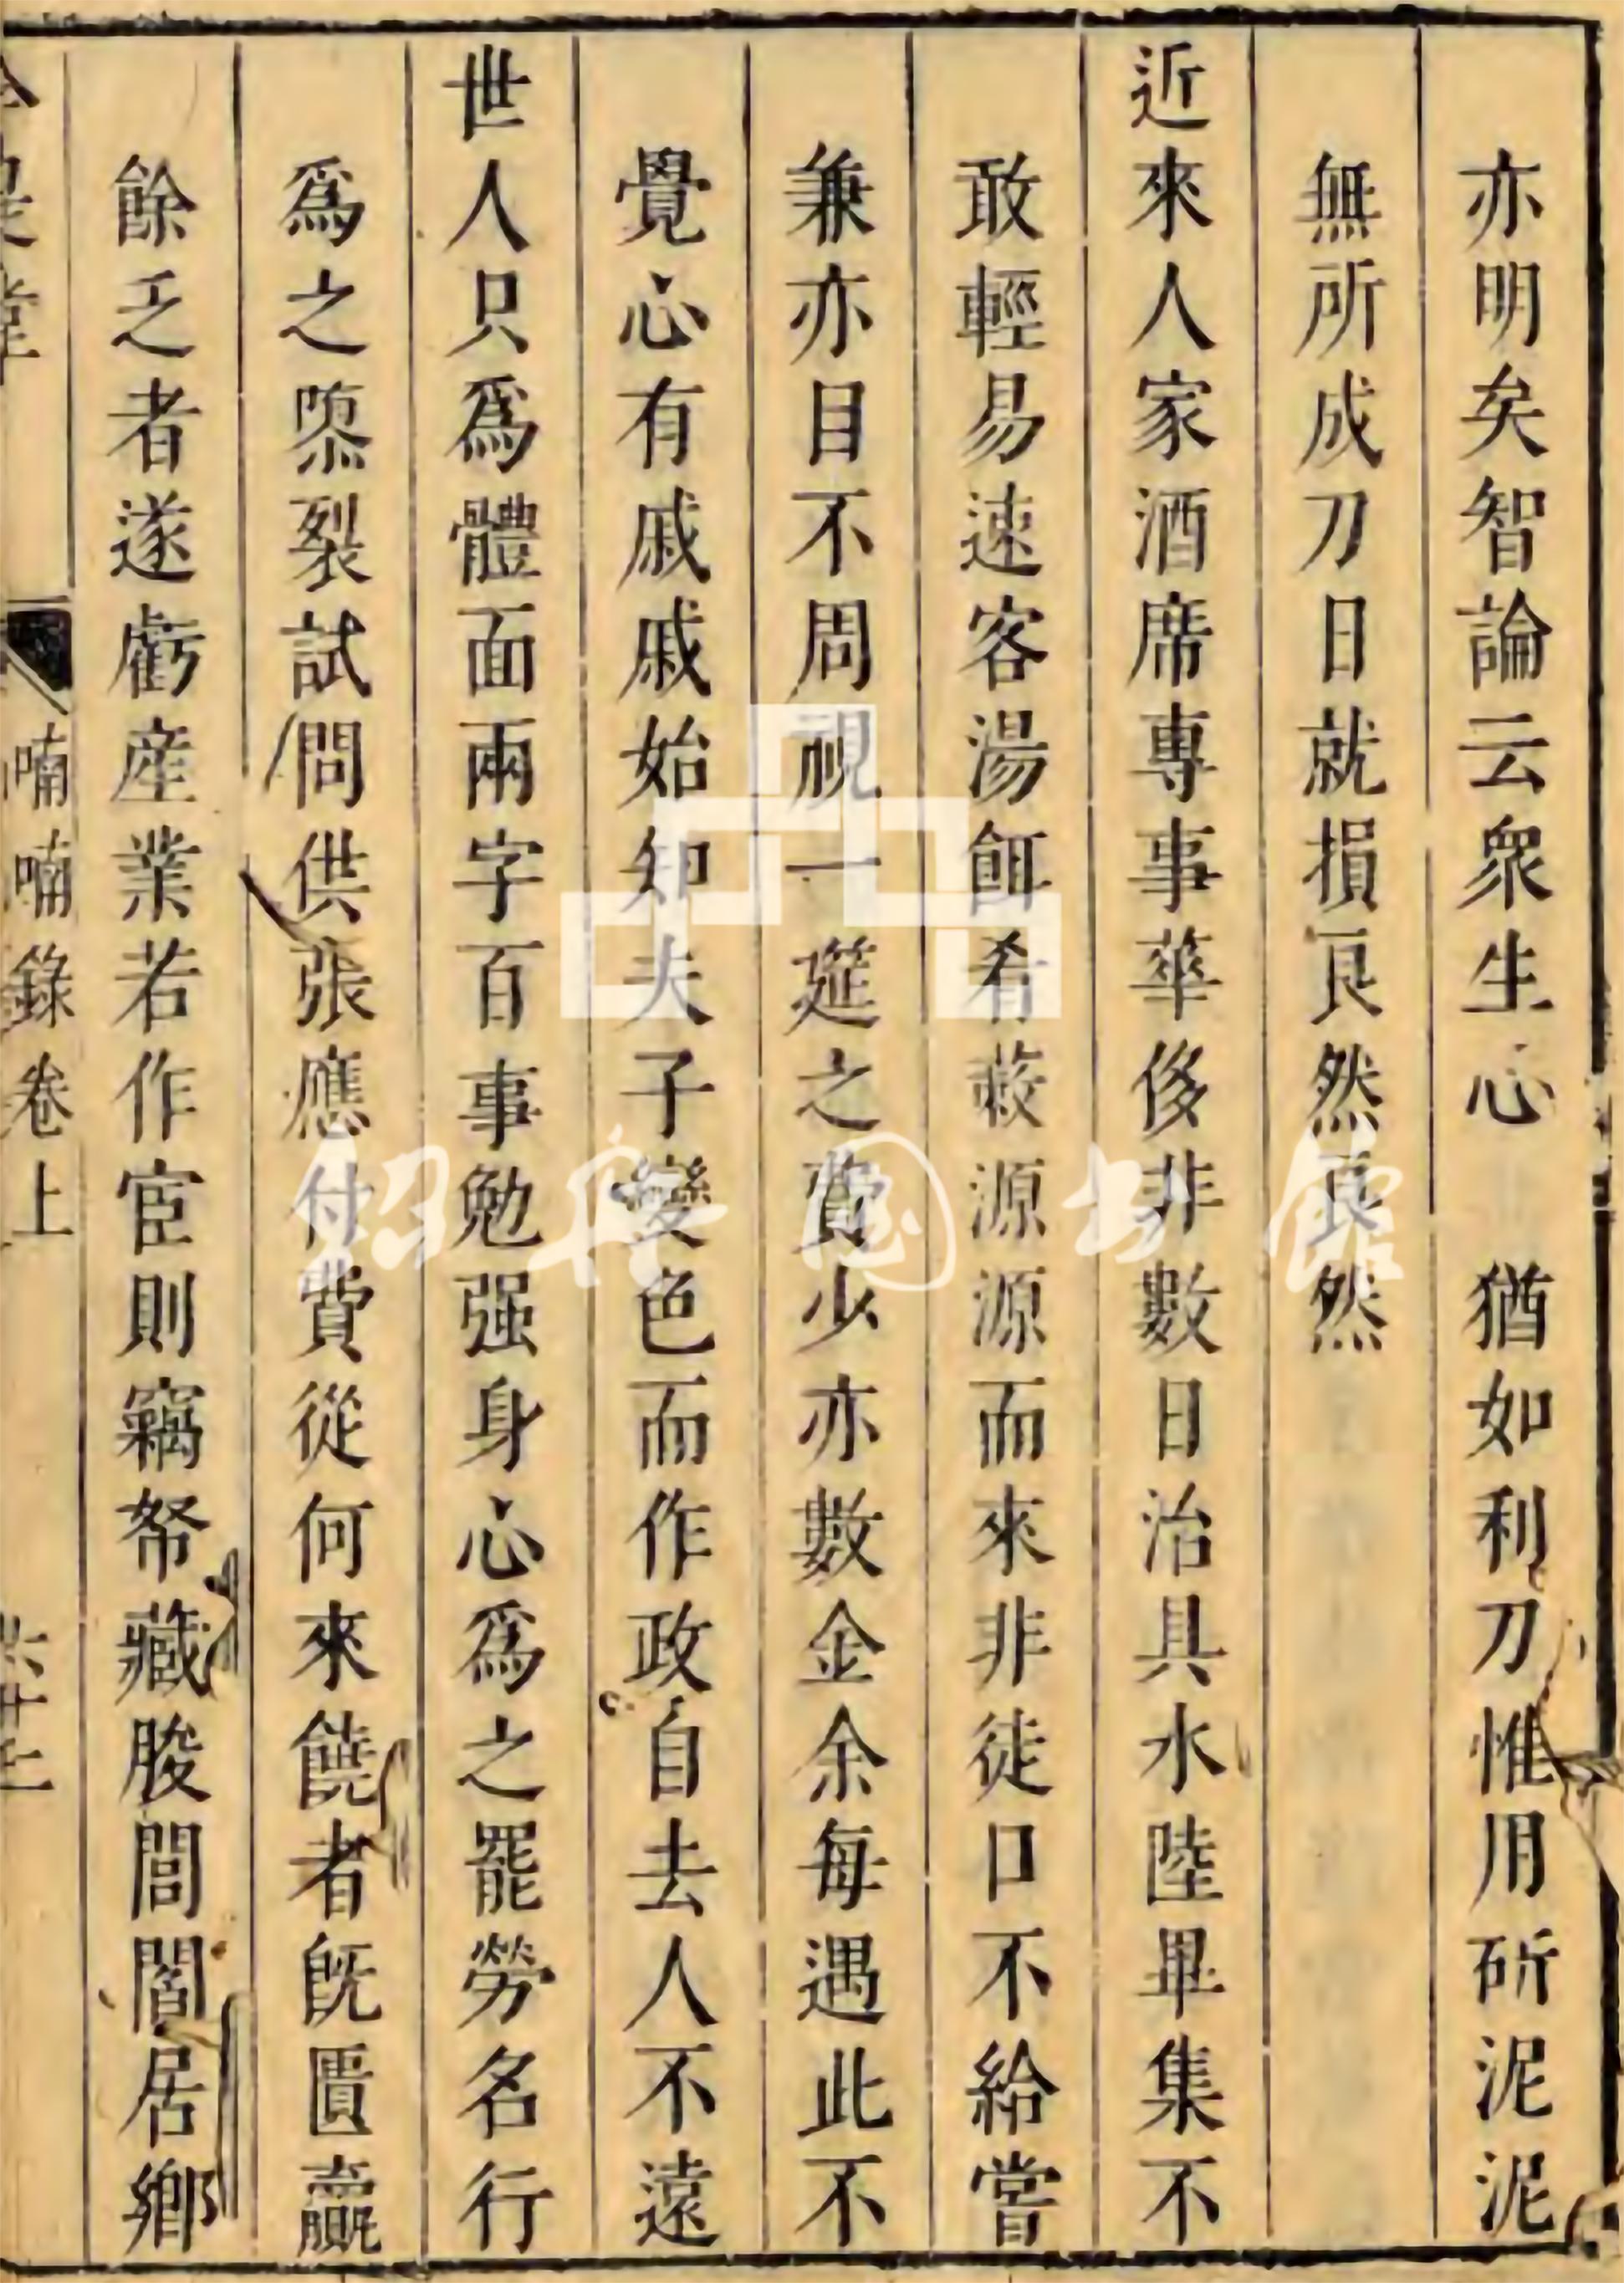 亦明矣智論云衆生心　猶如利刀惟用斫泥泥
無所成刀日就損良然良然
近來人家酒席專事華侈非數日治具水陸畢集不
敢輕易速客湯餌肴蔌源源而來非徒口不給嘗
兼亦目不周視一筵之費少亦數金余每遇此不
覺心有戚戚始知夫子變色而作政自去人不遠
世人只爲體面兩字百事勉强身心爲之罷勞名行
爲之隳裂試問供張應付費從何來饒者旣匱贏
餘乏者遂虧産業若作宦則竊帑藏朘閭閻居鄉
喃喃錄卷上
紹興圖書館